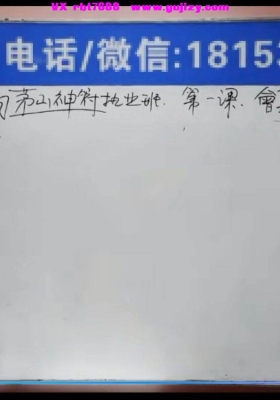 VX rbt7888 www.gujizy.com
电话/微信:1815
茅山神符执业班. 第一课.